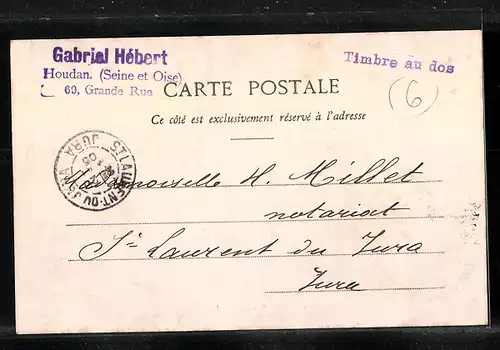 Gabriel Hébert
Houdan. (Seine et Oise)
69, Grande Rue
Timbre au dos
(6)
CARTE POSTALE
Ce côté est exclusivement réservé à l'adresse
ST LAURENT-DU-JURA
JURA
Mademoiselle H. Millet
notariat
St Laurent du Jura
Jura